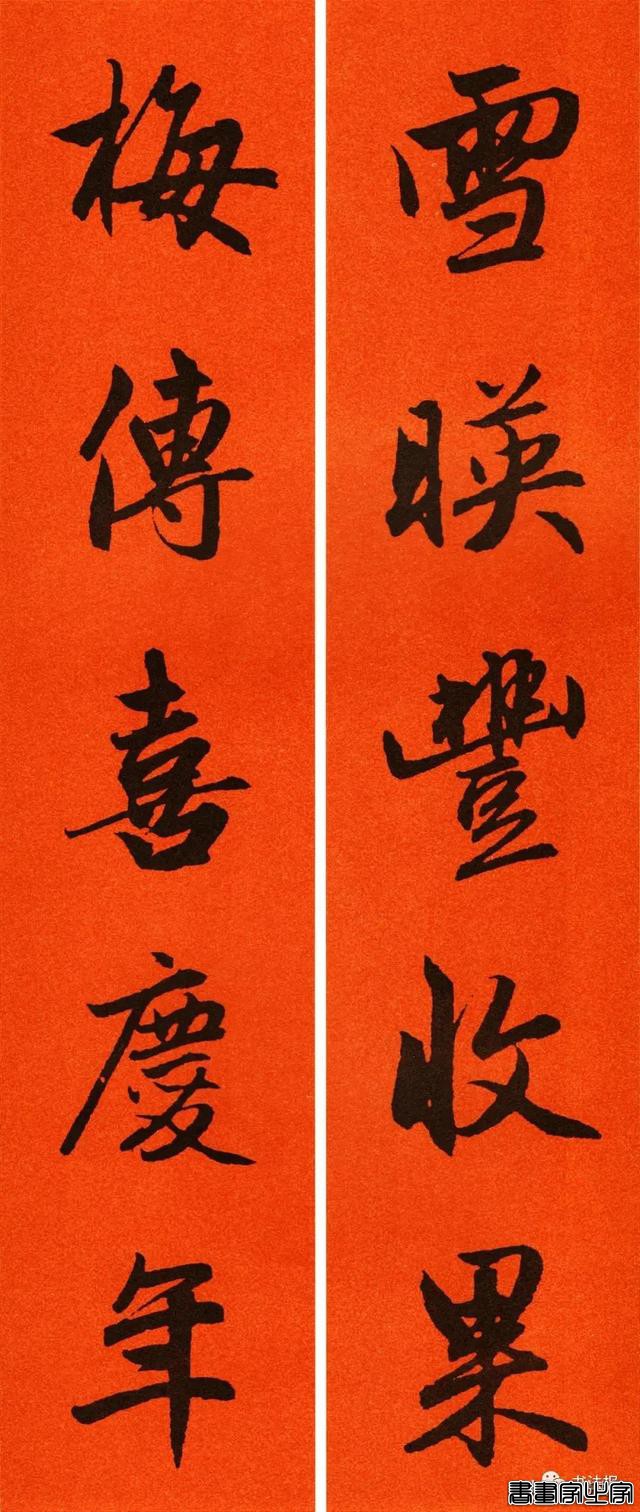 雪暎豐收果
梅傳喜慶年
書法報
書畫家之家